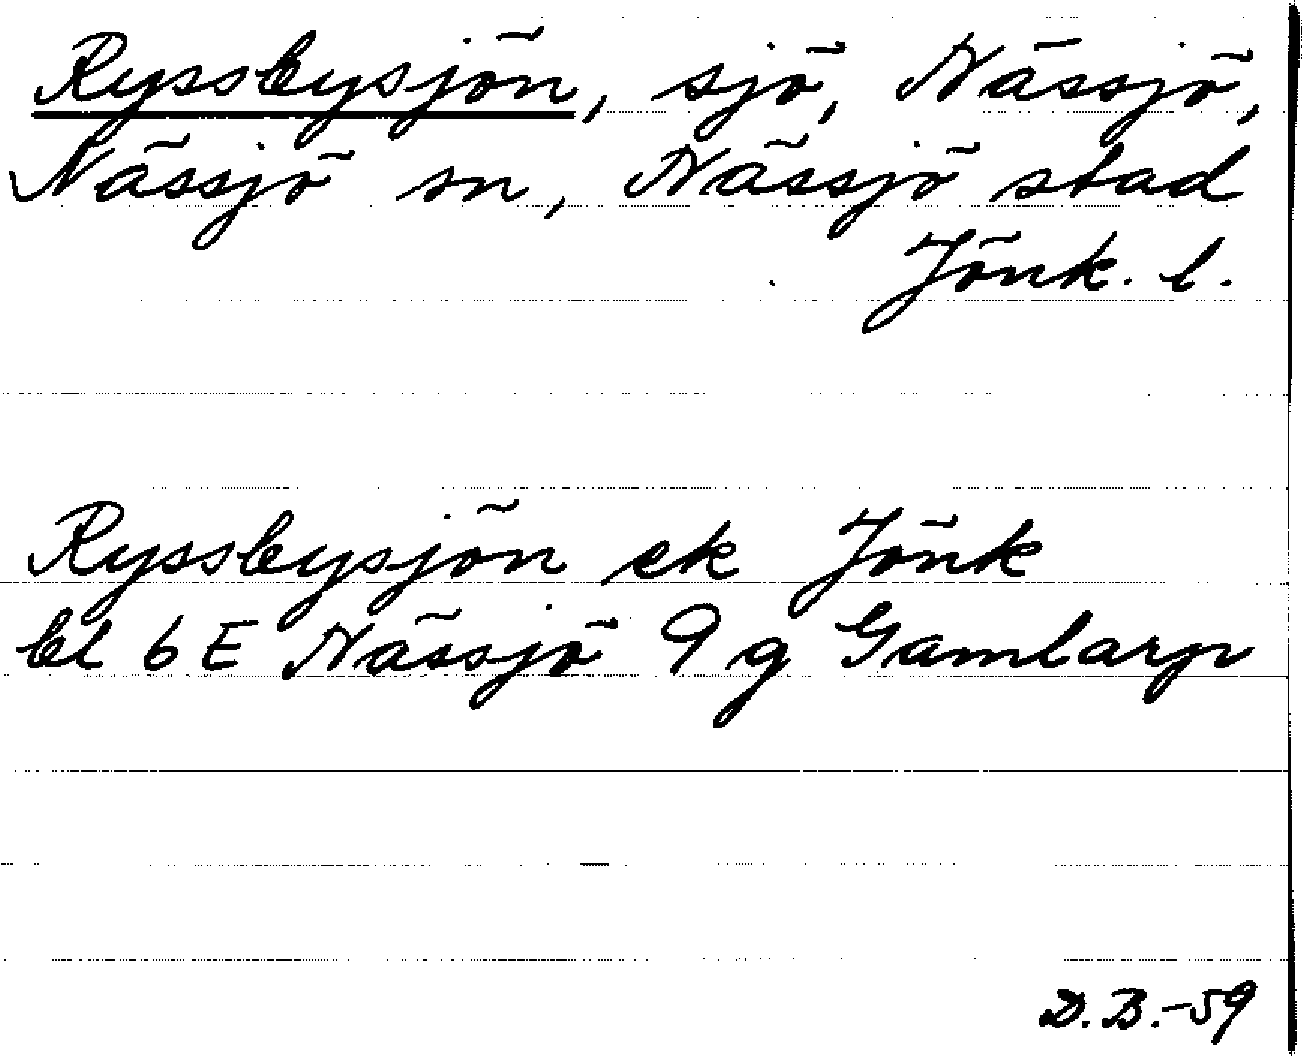 Ryssbysjön, sjö, Nässjö,
Nässjö sn, Nässjö stad
Jönk. l.
Ryssbysjön ek Jönk
bl 6 E Nässjö 9 g Gamlarp
D.B.-59